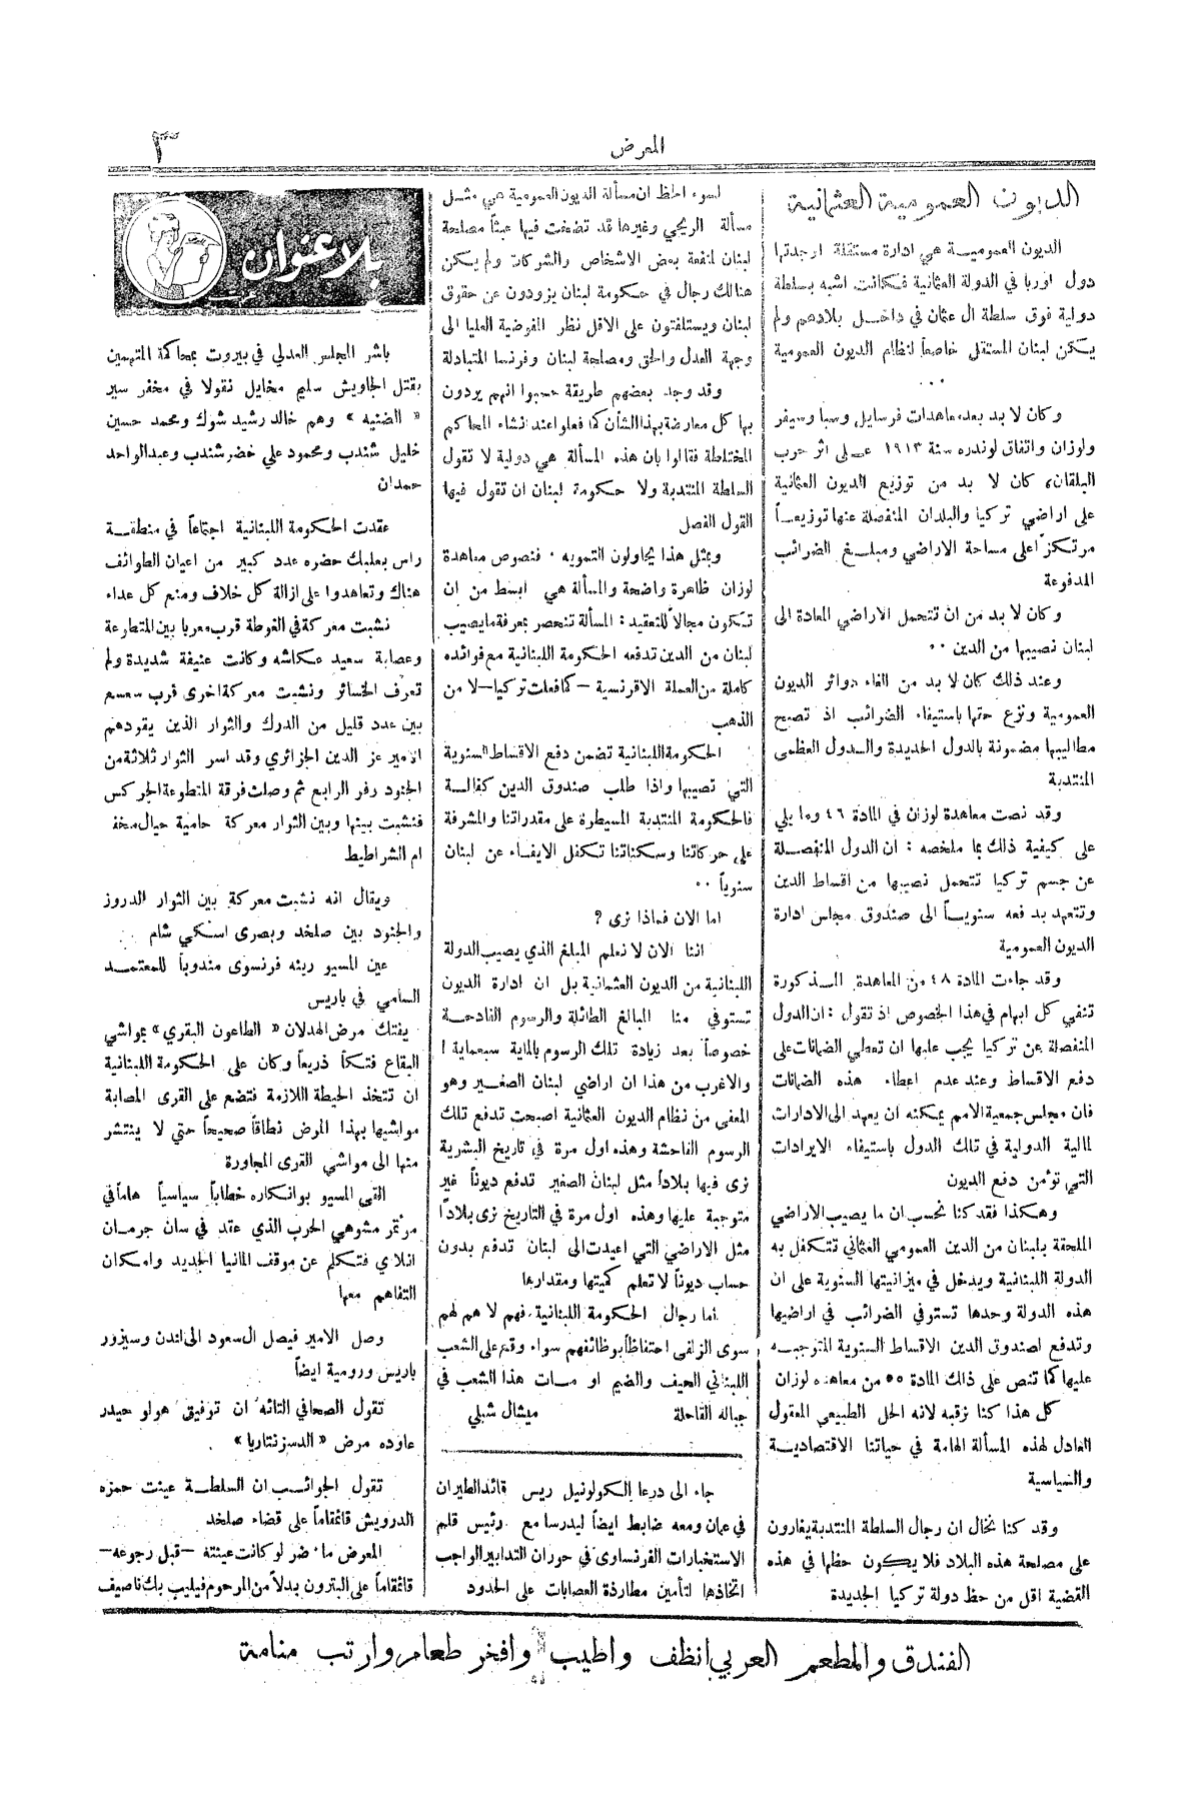 المعرض
٣
الديون العمومية العثمانية
الديون العموميـة هي ادارة مستقلة اوجدتها
دول اوربا في الدولة العثمانية فكانت اشبه بسلطة
دولية فوق سلطة ال عثمان في داخـل بلادهم ولم
يكن لبنان المستقل خاضعاً لنظام الديون العمومية
...
وكان لا بد بعد معاهدات فرسايل وسيا وسيفر
ولوزان واتفاق لوندره سنة ١٩١٣ عـلى اثر حرب
البلقان، كان لا بد من توزيع الديون العثمانية
على اراضي تركيا والبلدان المنفصلة عنها توزيعـاً
مرتكزاً على مساحة الاراضي ومبلـغ الضرائب
المدفوعة
وكان لا بد من ان تتحمل الاراضي المعادة الى
لبنان نصيبها من الدين ..
وعند ذلك كان لا بد من الغاء دوائر الديون
العمومية ونزع حتها باستيفاء الضرائب اذ تصبح
مطاليبها مضمونة بالدول الجديدة والـدول العظمى
المنتدبة
وقد نصت معاهدة لوزان في المادة ٤٦ وما يلي
على كيفية ذلك بما ملخصه : ان الدول المنفصـلة
عن جسم تركيا تتحمل نصيبها من اقساط الدين
وتتعهد بدفعه سنويـاً الى صندوق مجلس ادارة
الديون العمومية
وقد جاءت المادة ٤٨ من المعاهدة المـذكورة
تنفي كل ابهام في هذا الخصوص اذ تقول : ان الدول
المنفصلة عن تركيا يجب عليها ان تعطي الضمانات على
دفع الاقساط وعند عدم اعطاء هذه الضمانات
فان مجلس جمعية الامم يمكنه ان يعهد الى الادارات
المالية الدولية في تلك الدول باستيفاء الايرادات
التي تؤمن دفع الديون
وهكذا فقد كنا نحسب ان ما يصيب الاراضي
الملحقة بلبنان من الدين العمومي العثماني تتكفل به
الدولة اللبنانية ويدخل في ميزانيتها السنوية على ان
هذه الدولة وحدها تستوفي الضرائب في اراضيها
وتدفع لصندوق الدين الاقساط السنوية المتوجبـه
عليها كما تنص على ذلك المادة ٥٥ من معاهدة لوزان
كل هذا كنا نرقبه لانه الحل الطبيعي المعقول
العادل لهذه المسألة الهامة في حياتنا الاقتصاديـة
والسياسية
وقد كنا نخال ان رجال السلطة المنتدبة يغارون
على مصلحة هذه البلاد فلا يكون حظها في هذه
القضية اقل من حظ دولة تركيا الجديدة
لسوء الحظ ان مسألة الديون العمومية هي مثـل
مسألة الريجي وغيرها قد تضخت فيها عبثاً مصلحة
لبنان لمنفعة بعض الاشخاص والشركات ولم يكن
هنالك رجال في حكومة لبنان يزودون عن حقوق
لبنان ويستلفتون على الاقل نظر المفوضية العليا الى
وجهة العدل والحق ومصلحة لبنان وفرنسا المتبادلة
وقد وجد بعضهم طريقة حسبوا انهم يردون
بها كل معارضة بهذا الشأن كما فعلوا عند انشاء المحاكم
المختلطة فقالوا بان هذه المسألة هي دولية لا تقول
السلطة المنتدبة ولا حكومة لبنان ان تقول فيها
القول الفصل
وبمثل هذا يحاولون التمويه . فنصوص معاهدة
لوزان ظاهرة واضحة والمسألة هي ابسط من ان
تكون مجالاً للتعقيد : المسألة تنحصر بمعرفة ما يصيب
لبنان من الدين تدفعه الحكومة اللبنانية مع فوائده
كاملة من العملة الافرنسية – كما فعلت تركيا – لا من
الذهب
الحكومة اللبنانية تضمن دفع الاقساط السنوية
التي تصيبها واذا طلب صندوق الدين كفالـة
فالحكومة المنتدبة المسيطرة على مقدراتنا والمشرفة
على حركاتنا وسكناتنا تكفل الايفاء عن لبنان
سنوياً ..
اما الان فماذا نرى ؟
اننا الان لا نعلم المبلغ الذي يصيب الدولة
اللبنانية من الديون العثمانية بل ان ادارة الديون
تستوفي منا المبالغ الطائلة والرسوم الفادحـة
خصوصاً بعد زيادة تلك الرسوم بالماية سبعماية !
والاغرب من هذا ان اراضي لبنان الصغير وهو
المعفى من نظام الديون العثمانية اصبحت تدفع تلك
الرسوم الفاحشة وهذه اول مرة في تاريخ البشرية
نرى فيها بلاداً مثل لبنان الصغير تدفع ديوناً غير
متوجبة عليها وهذه اول مرة في التاريخ نرى بلاداً
مثل الاراضي التي اعيدت الى لبنان تدفع بدون
حساب ديوناً لا تعلم كميتها ومقدارها
أما رجال الحكومة اللبنانية . فهم لا هم لهم
سوى الزلفى احتفاظاً بوظائفهم سواء وقع على الشعب
اللبناني الحيف والضيم او مـات هذا الشعب في
جباله القاحلة ميشال شبلي
جاء الى درعا الكولونيل ريس قائد الطيران
في عمان ومعه ضابط ايضاً ليدرسا مع رئيس قلم
الاستخبارات الفرنساوي في حوران التدابير الواجب
اتخاذها لتأمين مطاردة العصابات على الحدود
بلا عنوان
باشر المجلس العدلي في بيروت بمحاكمة المتهمين
بقتل الجاويش سليم مخايل نقولا في مخفر سير
« الضنيه » وهم خالد رشيد شوك ومحمد حسين
خليل شندب ومحمود علي خضر شندب وعبد الواحد
حمدان
عقدت الحكومة اللبنانية اجتماعاً في منطقـة
راس بعلبك حضره عدد كبير من اعيان الطوائف
هناك وتعاهدوا على ازالة كل خلاف ومنع كل عداء
نشبت معركة في الغوطة قرب معربا بين المتطوعة
وعصابة سعيد عكاشه وكانت عنيفة شديدة ولم
تعرف الخسائر ونشبت معركة اخرى قرب سعسع
بين عدد قليل من الدرك والثوار الذين يقودهم
الامير عز الدين الجزائري وقد اسر الثوار ثلاثة من
الجنود وفر الرابع ثم وصلت فرقة المتطوعة الجركس
فنشبت بينها وبين الثوار معركة حامية حيال مخفر
ام الشراطيط
ويقال انه نشبت معركة بين الثوار الدروز
والجنود بين صلخد وبصرى اسكي شام
عين المسيو ربنه فرنسوى مندوباً للمعتمـد
السامي في باريس
يفتك مرض الهدلان « الطاعون البقري » بمواشي
البقاع فتكاً ذريعاً وكان على الحكومة اللبنانية
ان تتخذ الحيطة اللازمة فتضع على القرى المصابة
مواشيها بهذا المرض نطاقاً صحيحاً حتى لا ينتشر
منها الى مواشي القرى المجاورة
القى المسيو بوانكاره خطاباً سياسياً هاماً في
مؤتمر مشوهي الحرب الذي عقد في سان جرمـان
انلاي فتكلم عن موقف المانيا الجديد وامكان
التفاهم معها
وصل الامير فيصل ال سعود الى لندن وسيزور
باريس ورومية ايضاً
تقول الصحافي التائه ان توفيق هولو حيدر
عاوده مرض « الدسزنتاريا »
تقول الجوائـب ان السلطـة عينت حمزه
الدرويش قائمقاماً على قضاء صلخد
المعرض ما ضر لو كانت عينته – قبل رجوعه –
قائمقاماً على البترون بدلاً من المرحوم فيليب بك ناصيف
الفندق والمطعم العربي انظف واطيب وافخر طعام وارتب منامة